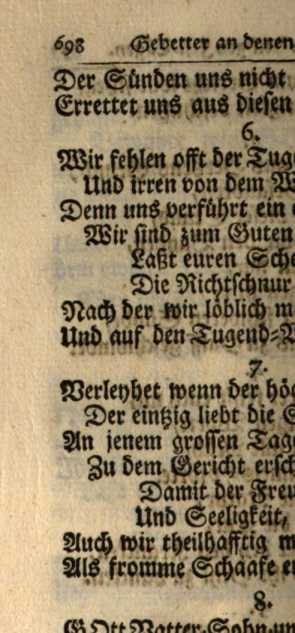 698 Gebetter an denen
Der Sünden uns nicht
Errettet uns aus diesen
6.
Wir fehlen offt der Tug
Und irren von dem W
Denn uns verführt ein
Wir sind zum Guten
Laßt euren Sche
Die Richtschnur
Nach der wir löblich
Und auf den Tugend-
7.
Verleyhet wenn der hö
Der eintzig liebt die
An jenem grossen Tag
Zu dem Gericht ersch
Damit der Freu
Und Seeligkeit,
Auch wir theilhafftig
Als fromme Schaafe
8.
GOtt Vatter, Sohn un